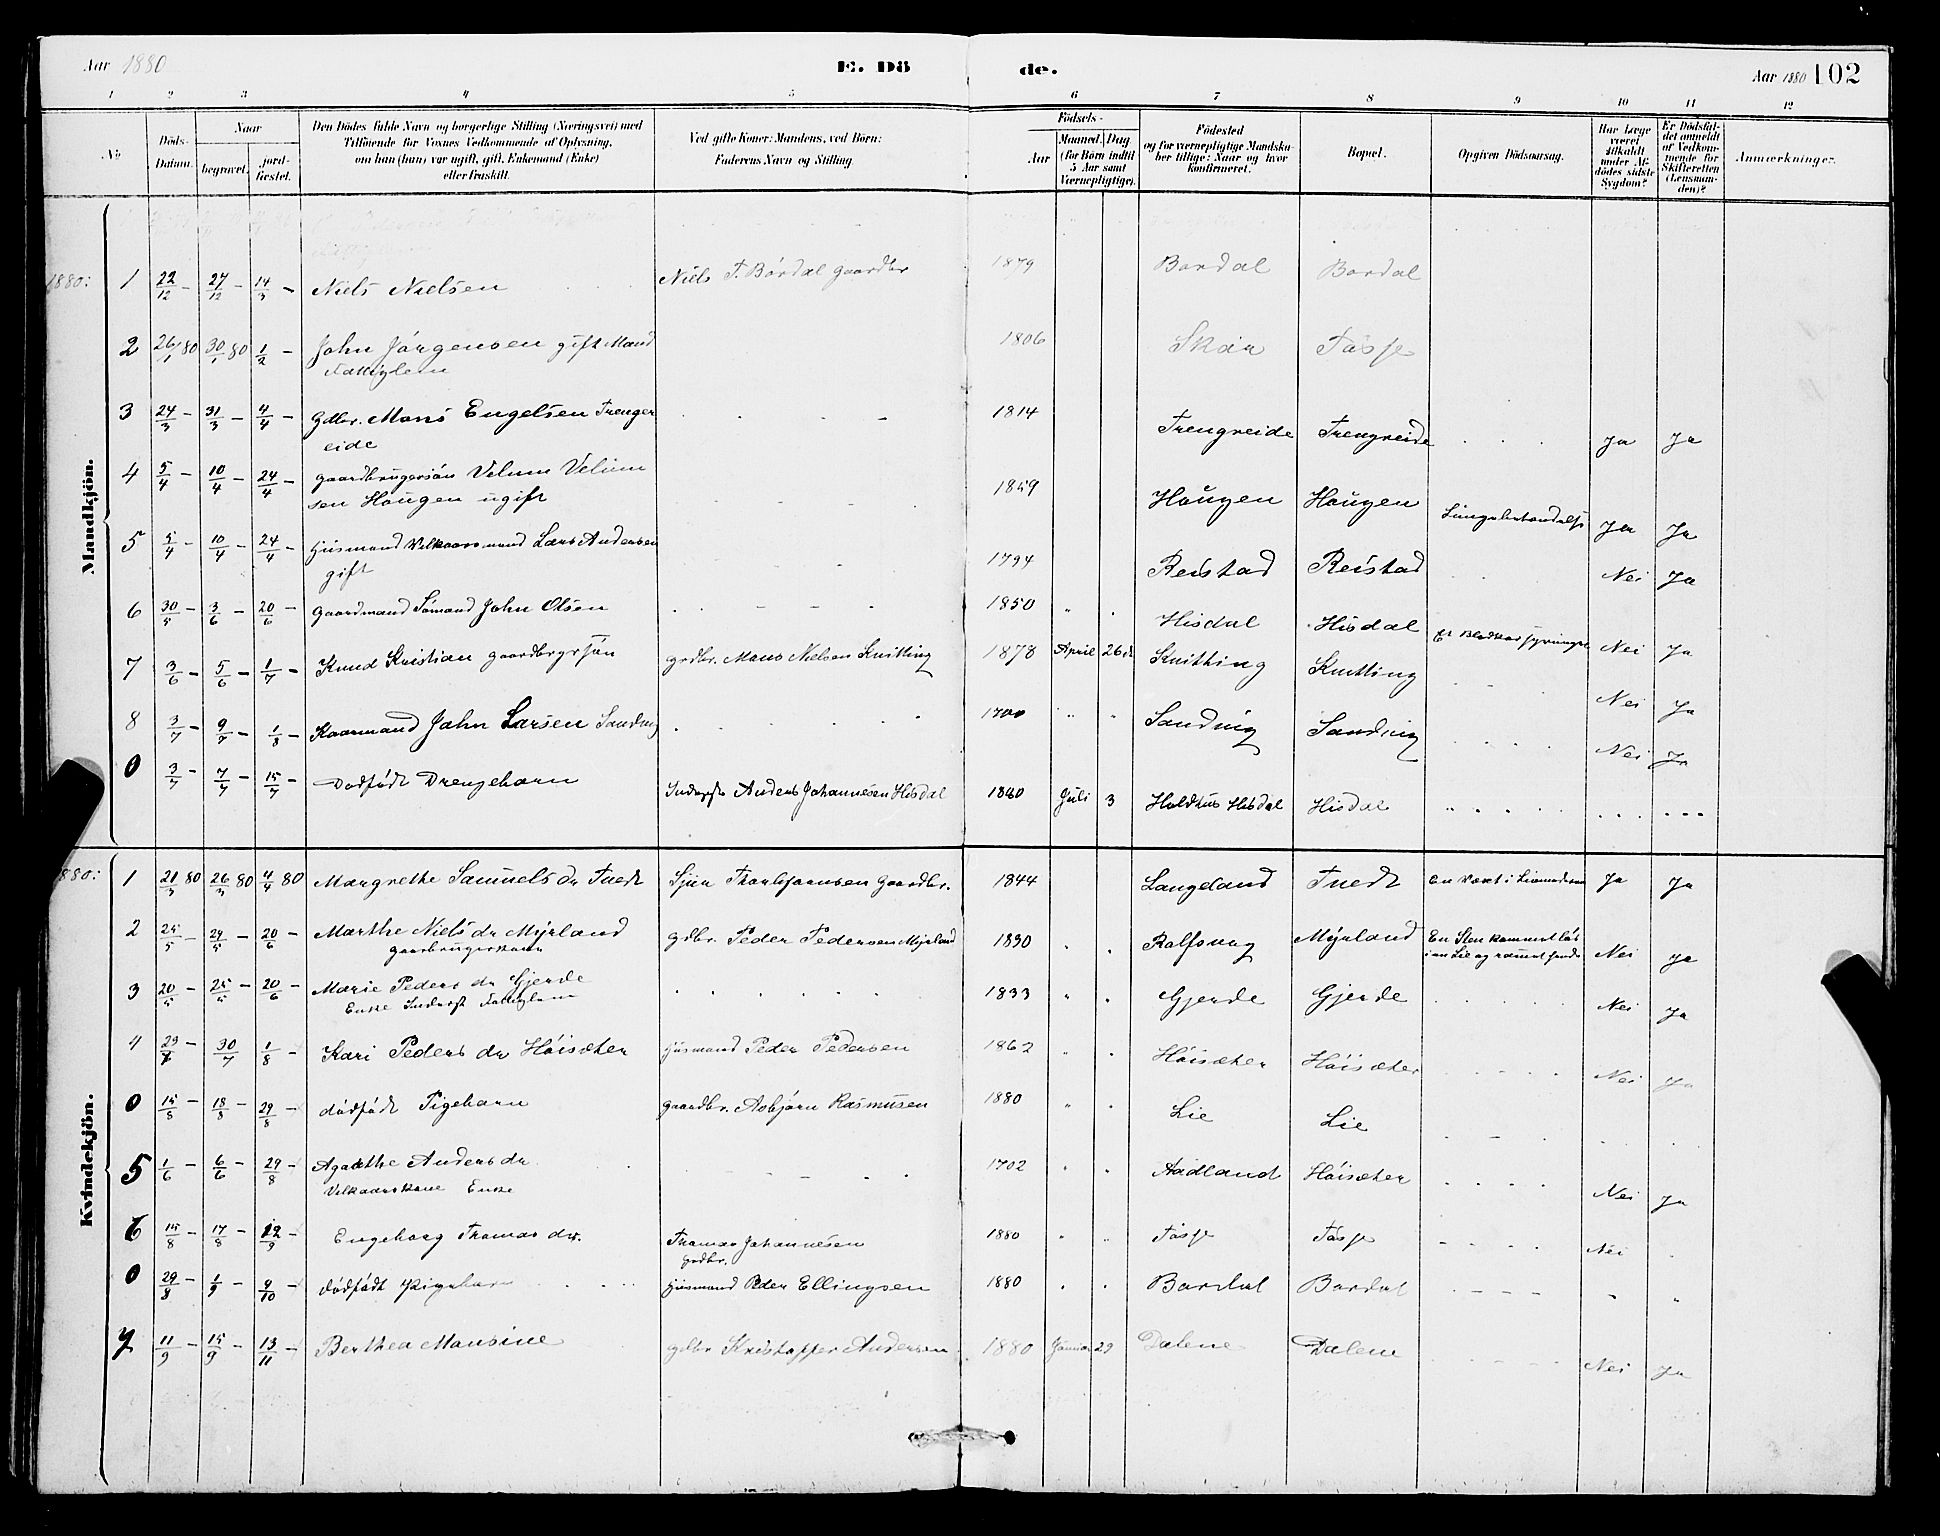 Aar 1880 E. Dö de. Aar 1880 102
1 2 3 4 5 6 7 8 9 10 11 12
No. Döds-Datum. Naar begravet. jord-fæstet. Den Dödes fulde Navn og borgerlige Stilling (Næringsvei) med Tilföiende for Voxnes Vedkommende af Oplysning, om han (hun) var ugift, gift, Enkemand (Enke) eller fraskilt. Ved gifte Koner: Mandens, ved Börn: Faderens Navn og Stilling. Födsels- Aar Maaned. Dag (for Börn indtil 5 Aar samt Værnepligtige). Födested og for værnepligtige Mandska-ber tillige: Naar og hvor konfirmeret. Bopæl. Opgiven Dödsaarsag. Har Læge været tilkaldt under Af-dödes sidste Sygdom? Er Dödsfal-det anmeldt af Vedkom-mende for Skifteretten (Lensman-den)? Anmærkninger.
Mandkjön.
1880: 1 22/12 - 27/12 - 14/3 - Niels Nielsen Niels T. Bördal gaardbr 1879 Bordal Bordal
2 26/1 80 30/1 80 1/2 - John Jörgensen gift Mand 1806 Skår Tösse
Fattiglem
3 24/3 - 31/3 - 4/4 - Gdbr. Mons Engelsen Trenger 1814 Trengreide Trengreide Ja Ja
eide
4 5/4 - 10/4 - 24/4 - gaardbrugersön Velum Velum 1859 Haugen Haugen Ja Ja
sen Haugen ugift
5 5/4 - 10/4 - 24/4 - Husmand Velkaarsmand Lars Andersen 1794 Reistad Reistad Nei Ja
gift
6 30/5 - 3/6 - 20/6 - gaardmand Sömand John Olsen 1850 Hisdal Hisdal Nei Ja
7 3/6 - 5/6 - 1/7 - Knud Kristian gaardbrgrsön grdbr. Mons Nielsen Knitting 1878 April 26de Knitting Knitting Nei Ja
8 3/7 - 9/7 - 1/8 - Kaarmand John Larsen Sanding Sanding Sanding Nei Ja
0 3/7 - 7/7 - 15/7 - Dödfödt Drengebarn Inderste Anders Johannesen Hisdal 1880 Juli 3 Holdhus Hisdal Hisdal
Kvindekjön.
1880: 1 21/3 80 26/3 80 4/4 80 Margrethe Samuels dr Tuedt Sjur Thorbjørnsen Gaardbr. 1844 Langeland Tuedt En Væxt i Livmoderen Ja Ja
2 25/5 - 29/5 - 20/6 - Marthe Niels dr Myrland gdbr. Peder Pedersen Myrland 1830 Rolfsvaag Myrland En Sten kommet lös Nei Ja
gaarbrugerskone
3 20/5 - 25/5 - 20/6 - Marie Peders dr Gjerde 1833 Gjerde Gjerde Nei Ja
Enke Inderst Fattiglem
4 29/7 - 30/7 1/8 Kari Peders dr Höisæter Husmand Peder Pedersen 1862 Höisæter Höisæter Nei Ja
0 15/8 - 18/8 - 29/8 - dödfödt Pigebarn gaardbr. Asbjörn Rasmusen 1880 Lie Lie
5 1/6 - 6/6 - 29/8 Agathe Anders dr 1702 Aadland Höisæter Nei Ja
Velkaarskone Enke
6 15/8 - 17/8 - 12/9 - Engeborg Thomas dr. Thomas Johannesen 1880 Tösse Tösse Nei
grdbr.
0 29/8 - 1/9 - 9/10 dödfödt Pigebarn Husmand Peder Ellingsen 1880 Bordal Bordal
7 11/9 - 15/9 - 13/11 Berthea Monsine gdbr Kristoffer Andersen 1880 Januar 29 Dalene Dalene Nei Ja